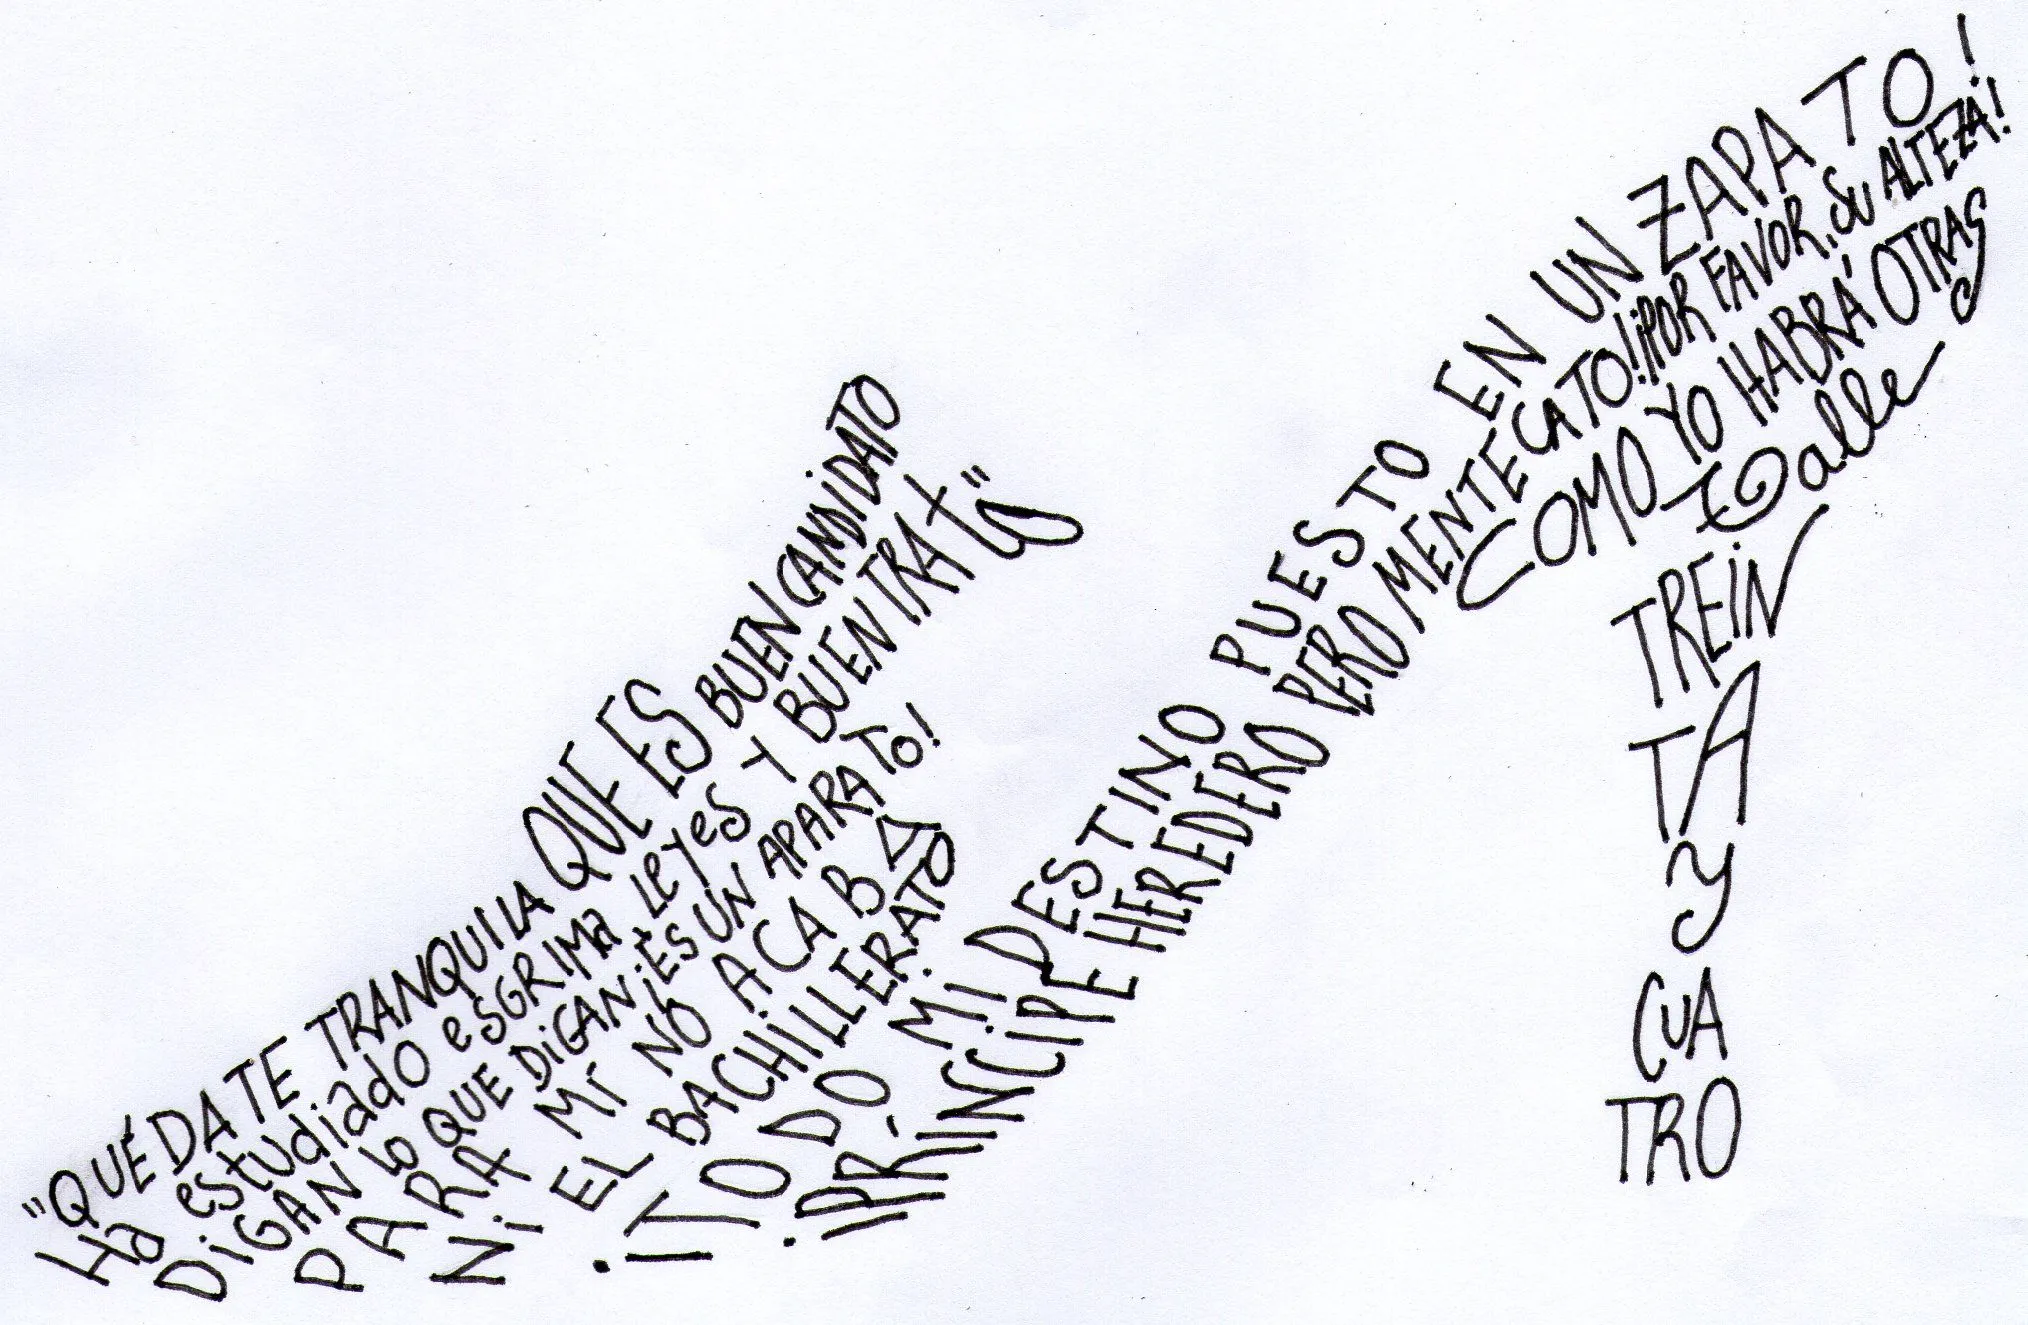 "QUÉDATE TRANQUILA QUE ES BUEN CANDIDATO
Ha estudiado esGRIMa, LeYes Y BUEN TRATO"
DiGAN Lo QUE DiGAN ¡ES UN APARATO!
PARA Mí NO ACABÓ
Ni EL BACHiLLERATO.
¡TODO Mi DESTINO PUESTO EN UN ZAPATO!
¡PRÍNCIPE HEREDERO PERO MENTECATO!
¡POR FAVOR, SU ALTEZA!
COMO YO HABRÁ OTRAS
Talle
TREiN
TA
y
CUA
TRO